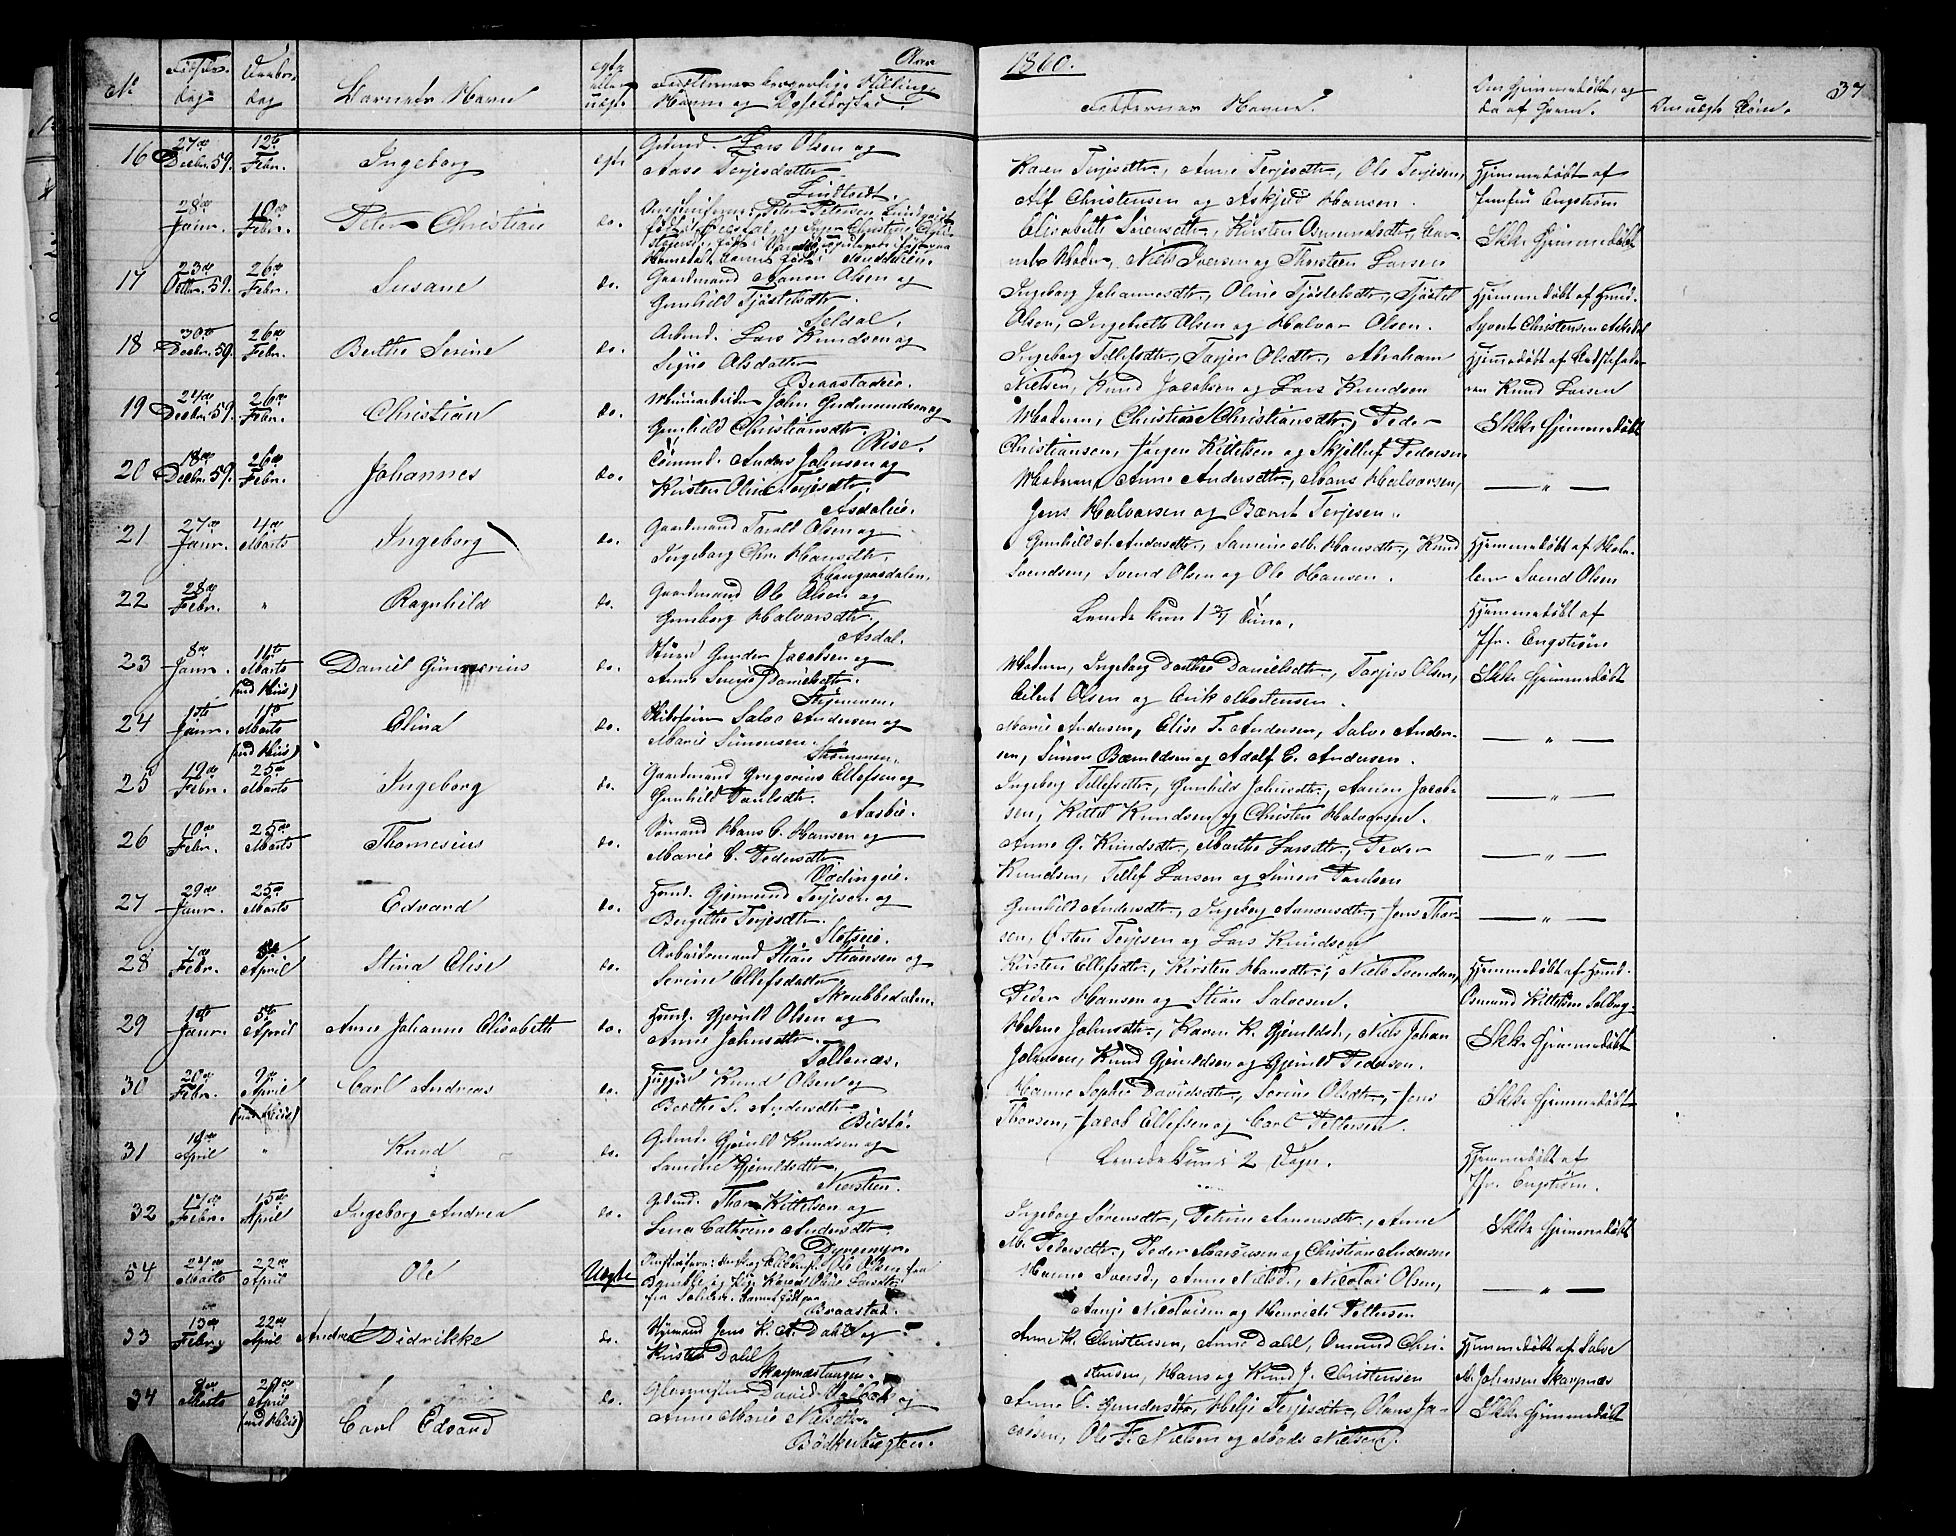 Aar 1860.
37
No Fødsels- dag Daabs- dag Barnets Navn egte eller uegte Forældrenes borgerlige Stilling, Navne og Opholdssted Faddernes Navne. Om hjemmedøbt, og da af hvem. Om uegte Børn.
16 27de Decbr. 59. 12te Febr. Ingeborg egte Gdmd. Lars Olsen og
Aase Terjesdatter
Lindtveit.
Karen Terjesdtr., Anne Terjesdtr., Ole Terjesen,
Alf Christensen og Askjød Hansen.
Hjemmedøbt af
Jomfru Engstrøm
28de Janr. 10de Febr. Peter Christian do. Peter Petersen
Elisabeth Sørensdtr., Kirsten Osmundsdtr., Bar-
nets Moder, Niels Iversen og Thorsteen Larsen
Ikke hjemmedøbt
17 23de Octbr. 59. 26de Febr. Susane do. Gaardmand Aanon Olsen og
Gunhild Tjøstelsdtr.
Seldal.
Ingeborg Johannesdtr., Oline Tjøstelsdtr., Tjøstel
Olsen, Ingebreth Olsen og Halvor Olsen.
Hjemmedøbt af Husmd.
Syvert Christensen Askedal
18 30te Decbr. 59. 26de Febr. Berthe Serine do. Arbmd. Lars Knudsen og
Signe Olsdatter
Braastadeie.
Ingeborg Tellefsdtr., Torjer Olsdtr., Abraham
Nielsen, Knud Jacobsen og Lars Knudsen
Hjemmedøbt af Bedstefade-
ren Knud Larsen
19 24de Decbr. 59. 26de Febr. Christian do. Minearbeider John Gudmundsen og
Gunhild Christiansdtr.
Rise.
Moderen, Christiane Christiansdtr., Peder
Christiansen, Jørgen Kittelsen og Skjelluf Pedersen
Ikke hjemmedøbt
20 18de Decbr. 59. 26de Febr. Johannes do. Sømd. Anders Johnsen og
Kirsten Oline Terjesdtr.
Asdaleie.
Moderen, Anne Andersdtr., Mons Halvorsen,
Jens Halvorsen og Bærnt Terjesen.
— " —
21 27de Janr. 4de Marts Ingeborg do. Gaardmand Torald Olsen og
Ingeborg Chr. Hansdtr.
Haugaasdalen.
Gunhild A. Andersdtr., Samine M. Hansdtr., Knud
Svendsen, Svend Olsen og Ole Hansen.
Hjemmedøbt af Sko-
len Svend Olsen
22 28de Febr. " Ragnhild do. Gaardmand Ole Olsen og
Gunborg Halvorsdtr.
Asdal.
Levede kun 1 Time.
Hjemmedøbt af
Jfr. Engstrøm
23 8de Janr. 11te Marts (ved Huus) Daniel Gunnerius do. Styrmd Gunder Jacobsen og
Anne Serine Danielsdtr.
Moderen, Ingeborg Dorthea Danielsdtr., Torjus Olsen,
Eilert Olsen og Erik Mortensen.
Ikke hjemmedøbt
24 1ste Janr. 11te Marts (ved Huus) Elina do. Skibsfører Salve Andersen og
Marie Simonsen.
Strømmen.
Marie Andersen, Elise T. Andersen, Salve Ander-
sen, Simon Bærnildsen og Adolf C. Andersen.
— " —
25 19de Febr. 25de Marts Ingeborg do. Gaardmand Gregorius Ellefsen og
Gunhild Paulsdtr.
Aasbie.
Ingeborg Tellefsdtr., Gunhild Johnsdtr., Aanon Jacob-
sen, Kittel Knudsen og Christen Halvorsen.
— " —
26 10de Febr. 25de Marts Thomesius do. Sømand Hans C. Hansen og
Marie C. Pedersdtr.
Vødingeie.
Anne G. Knudsdtr., Marthe Larsdtr., Peder
Knudsen, Tellef Larsen og Simon Paulsen
— " —
27 29de Janr. 25de Marts Edvard do. Husmd. Gjermund Terjesen og
Bergithe Terjesdtr.
Gunhild Andersdtr., Ingeborg Aanonsdtr., Jens Thor-
sen, Østen Terjesen og Lars Knudsen
— " —
28 7de Febr. 5te April Stina Elise do. Arbeidsmand Stian Stiansen og
Serine Ellefsdatter
Skrubbedalen.
Kirsten Ellefsdtr., Kirsten Hansdtr., Niels Svendsen,
Peder Hansen og Stian Salvesen.
Hjemmedøbt af Husmd.
Osmund Kittelsen Solberg
29 1ste Janr. 5te April Anne Johanne Elisabeth do. Husmd. Gjeruld Olsen og
Anne Johnsdtr.
Tollenæs.
Helene Johnsdtr., Karen K. Gjeruldsd., Niels Johan
Johnsen, Knud Gjeruldsen og Gjeruld Pedersen.
Ikke hjemmedøbt
30 20de Febr. 9de April (ved Huus) Carl Andreas do. Knud Olsen og
Berthe S. Andersdtr.
Bierstø.
Hanne Sophie Davidsdtr., Serine Olsdtr., Jens
Thorsen, Jacob Ellefsen og Carl Pettersen.
Ikke hjemmedøbt
31 19de April " Knud do. Gdmd. Gjeruld Knudsen og
Samine Gjeruldsdtr.
Nærsteen.
Levede kun i 2 Dage.
Hjemmedøbt af
Jfr. Engstrøm.
32 17de Febr. 15de April Ingeborg Andrea do. Gdmd. Thor Kittelsen og
Lena Cathrine Andersdtr.
Dyremyr.
Ingeborg Sørensdtr., Petrine Aanonsdtr., Anne
M. Pedersdtr., Peder Mariussen og Christian Andersen
Ikke hjemmedøbt
54 24de Marts 22de April Ole Uegte Ole Olsen fra
Bamble og Pige Karen Oline Larsdtr.
Braastad.
Hanne Iversd., Anne Nielsd., Nicolai Olsen,
Aanje Nicolaisen og Henrich Pettersen
— " —
33 13de Febr. 22de April Andrea Didrikke do. Styrmand Jens K. A. Dahl og
Kirsten Dahl
Skarpnæstangen.
Anne K. Christensen, Anne Dahl, Osmund Chri-
stensen, Hans og Knud J. Christensen
Hjemmedøbt af Salve
A. Johnsen Skarpnæs
34 8de Marts 29de April (ved Huus) Carl Edvard do. David
Anne Marie Nielsdtr.
Bødkerbugten.
Anne O. Gundersdtr., Helje Terjesdtr., Olaus Ja-
cobsen, Ole F. Nielsen og Mads Nielsen.
Ikke hjemmedøbt